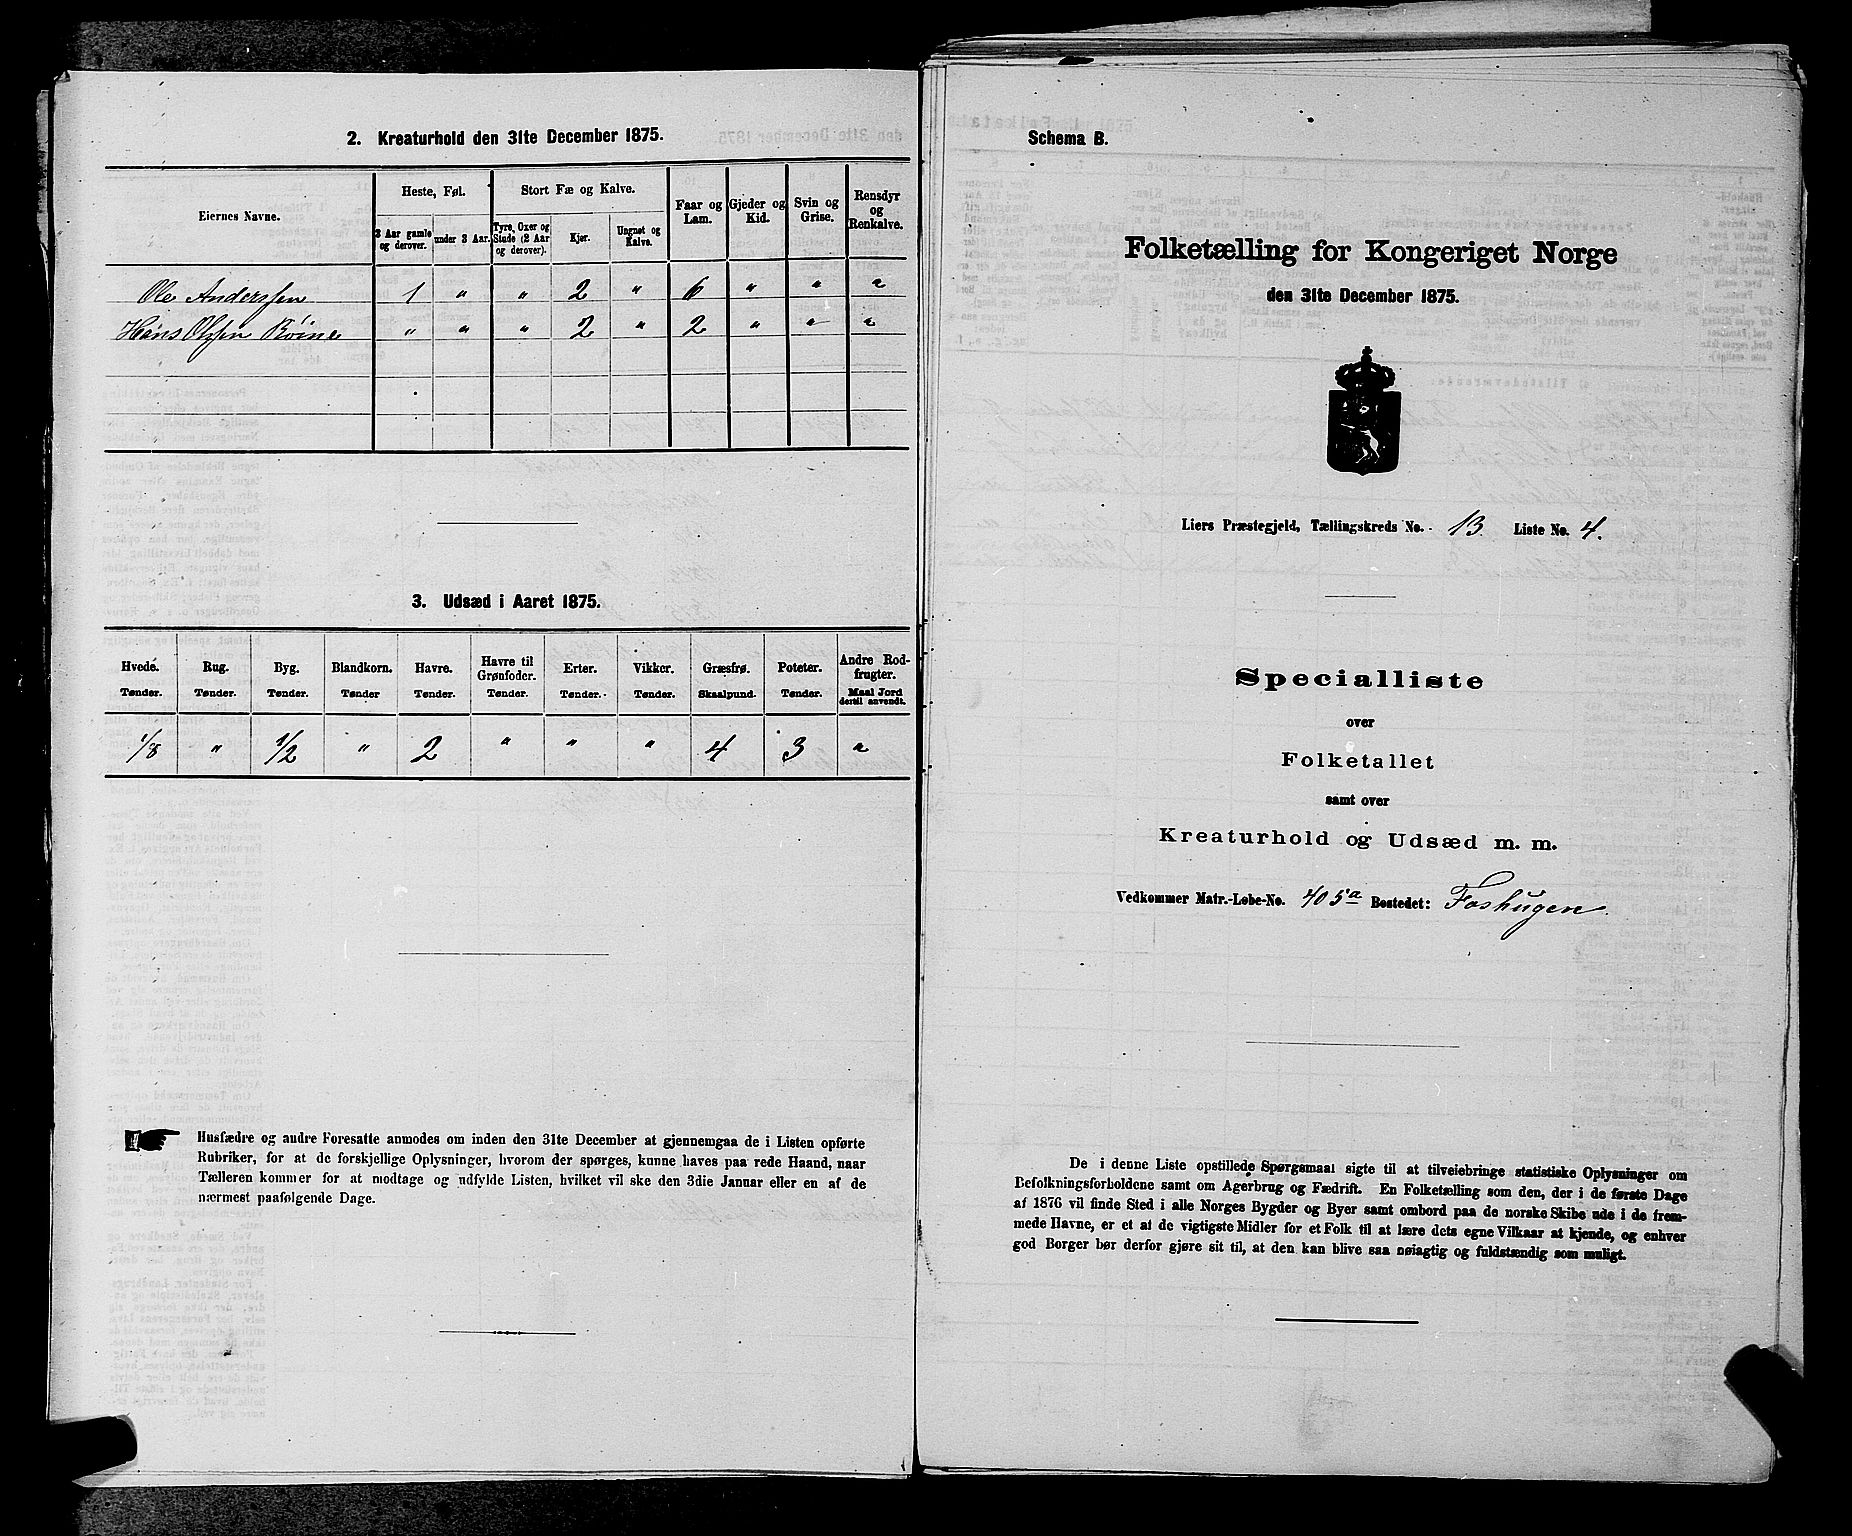 2. Kreaturhold den 31te December 1875.
Eiernes Navne.
Heste, Føl.
3 Aar gamle og derover.
under 3 Aar.
Stort Fæ og Kalve.
Tyre, Oxer og Stude (2 Aar og derover).
Kjør.
Ungnøt og Kalve.
Faar og Lam.
Gjeder og Kid.
Svin og Grise.
Rensdyr og Renkalve.
Ole Anderssen 1 " " 2 " 6 " " "
Hans Olssen " " " 2 " 2 " " "
3. Udsæd i Aaret 1875.
Hvede. Tønder.
Rug. Tønder.
Byg. Tønder.
Blandkorn. Tønder
Havre. Tønder.
Havre til Grønfoder. Tønder.
Erter. Tønder.
Vikker. Tønder.
Græsfrø. Skaalpund.
Poteter. Tønder.
Andre Rodfrugter. Maal Jord dertil anvendt.
1/8 " 1/2 " 2 " " " 4 3 "
Husfædre og andre Foresatte anmodes om inden den 31te December at gjennemgaa de i Listen opførte
Rubriker, for at de forskjellige Oplysninger, hvorom der spørges, kunne haves paa rede Haand, naar
Tælleren kommer for at modtage og udfylde Listen, hvilket vil ske den 3die Januar eller en af de
nærmest paafølgende Dage.
Schema B.
Folketælling for Kongeriget Norge
den 31te December 1875.
Liers Præstegjeld, Tællingskreds No. 13. Liste No. 4.
Specialliste
over
Folketallet
samt over
Kreaturhold og Udsæd m. m.
Vedkommer Matr.-Løbe-No. 405a Bostedet: Foshugen.
De i denne Liste opstillede Spørgsmaal sigte til at tilveiebringe statistiske Oplysninger om
Befolkningsforholdene samt om Agerbrug og Fædrift. En Folketælling som den, der i de første Dage
af 1876 vil finde Sted i alle Norges Bygder og Byer samt ombord paa de norske Skibe ude i de frem-
mede Havne, er et af de vigtigste Midler for et Folk til at lære dets egne Vilkaar at kjende, og enhver
god Borger bør derfor gjøre sit til, at den kan blive saa nøiagtig og fuldstændig som muligt.